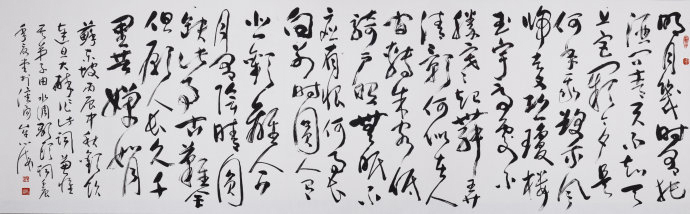 明月几时有把
酒问青天不知天
上宫阙今夕是
何年我欲乘风
归去又恐琼楼
玉宇高处不
胜寒起舞弄
清影何似在人
间转朱阁低
绮户照无眠不
应有恨何事长
向别时圆人有
悲欢离合
月有阴晴圆
缺此事古难全
但愿人长久千
里共婵娟
苏东坡丙辰中秋欢饮
达旦大醉作此词兼怀
子由水调歌头